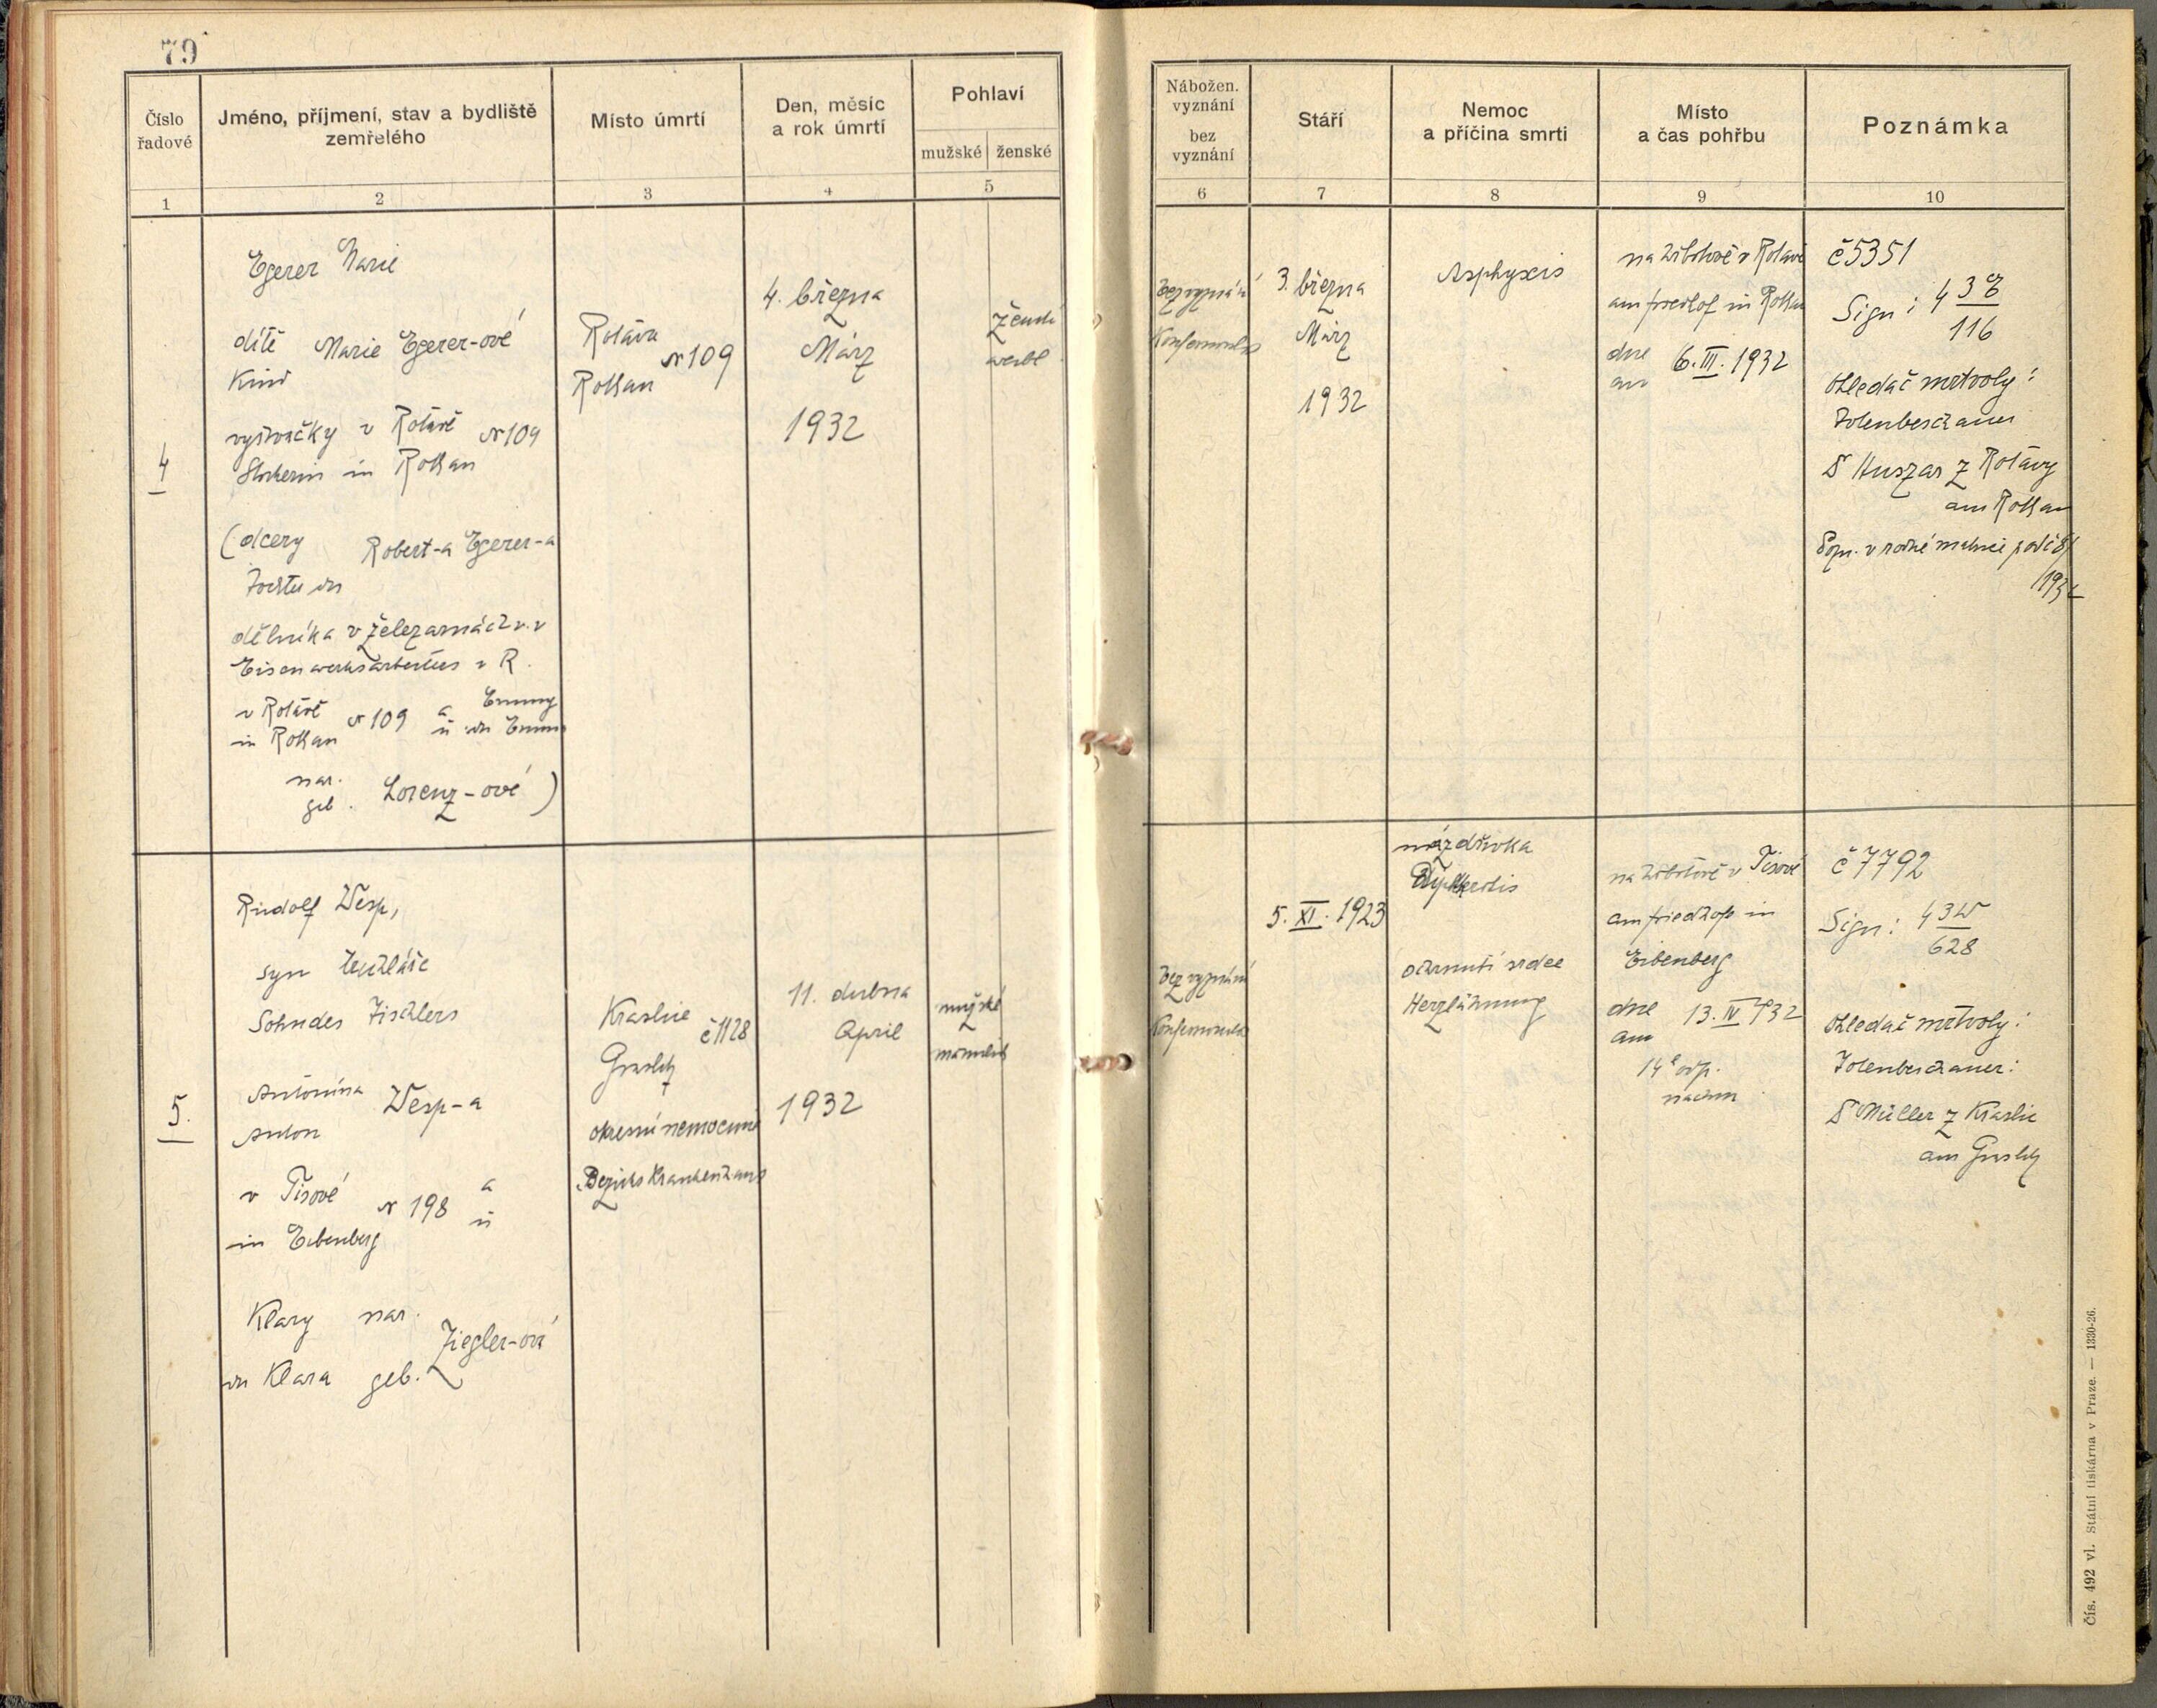 79
Číslo
řadové
Jméno, příjmení, stav a bydliště
zemřelého
Místo úmrtí
Den, měsíc
a rok úmrtí
Pohlaví
mužské ženské
Nábožen.
vyznání
bez
vyznání
Stáří
Nemoc
a příčina smrti
Místo
a čas pohřbu
Poznámka
1 2 3 4 5 6 7 8 9 10
4
Egerer Marie
dítě Marie Egerer-ové
Kind
v Rotávě № 109
in Rothau
(dcery Robert-a Egerer-a
Tochter des
dělníka v železarnách v. v
Eisenwerksarbeiters i. R.
v Rotávě № 109 a Emmy
in Rothau u. der Emma
nar.
geb. Lorenz-ové)
Rotáva
№ 109
Rothau
4. března
März
1932
ženské
weibl
bez vyznání
Konfessionslos
3. března
März
1932
Asphyxis
na hřbitově v Rotavě
am friedhof in Rothau
dne
am 6. III. 1932
č 5351
Sign: 4 3E
116
Ohledač mrtvoly:
Totenbeschauer
Dr Huszar z Rotávy
aus Rothau
5.
Rudolf Wesp,
syn truhláře
Sohn des Tischlers
Antonína Wesp-a
Anton
v Tisové № 198 a
in Eibenberg u
Klary nar.
Ziegler-ové
der Klara geb.
Kraslice
č 1128
Graslitz
okresní nemocnice
Bezirkskrankenhaus
11. dubna
April
1932
mužské
männlich
bez vyznání
Konfessionslos
5. XI. 1923
mázdřivka
Diphtheritis
ochrnutí srdce
Herzlähmung
na hřbitově v Tisové
am friedhofe in
Eibenberg
dne 13. IV. 932
am
14h odp.
nachm
č 7792
Sign: 4 3W
628
Ohledač mrtvoly:
Totenbeschauer:
Dr Müller z Kraslic
aus Graslitz
Čís. 492 vl. Státní tiskárna v Praze. — 1330-26.